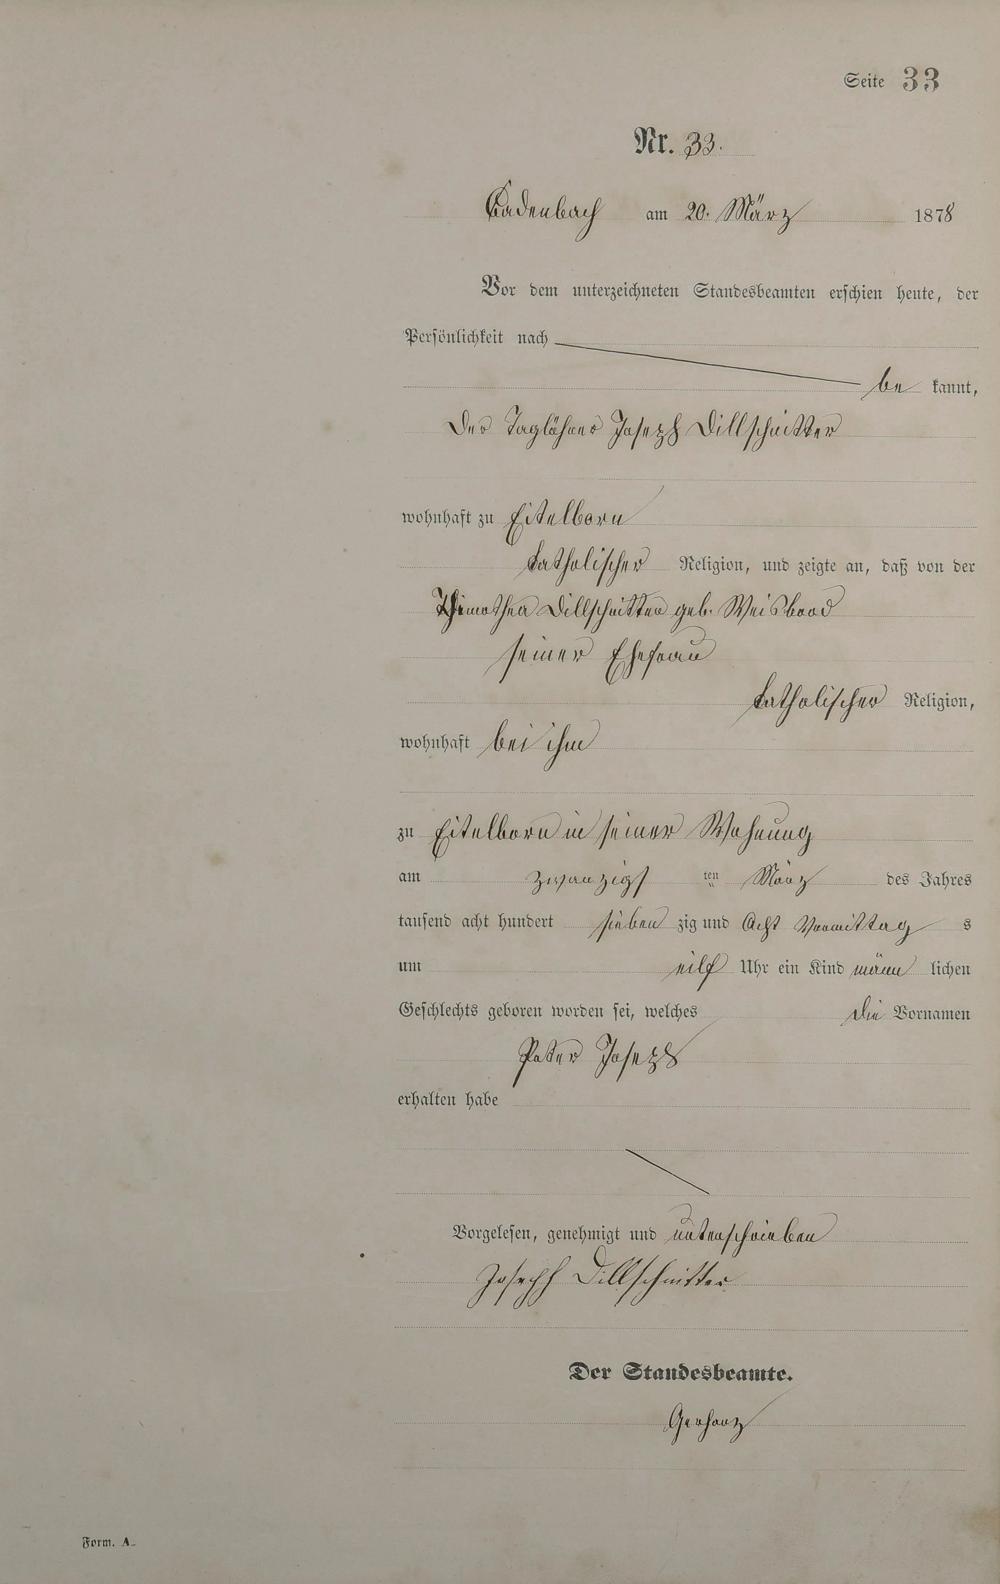 Seite 33
Nr. 33.
Cadenbach am 20. März 1878
Vor dem unterzeichneten Standesbeamten erschien heute, der
Persönlichkeit nach
be kannt,
der Taglöhner Joseph Dillschnitter
wohnhaft zu Eitelborn
katholischer Religion, und zeigte an, daß von der
Thimothea Dillschnitter geb. Weisbrod
seiner Ehefrau
katholischer Religion,
wohnhaft bei ihm
zu Eitelborn in seiner Wohnung
am zwanzigs ten März des Jahres
tausend acht hundert sieben zig und Acht Vormittag s
um eilf Uhr ein Kind männ lichen
Geschlechts geboren worden sei, welches die Vornamen
Peter Joseph
erhalten habe
Vorgelesen, genehmigt und unterschrieben
Joseph Dillschnitter
Der Standesbeamte.
Gerharz
Form. A.